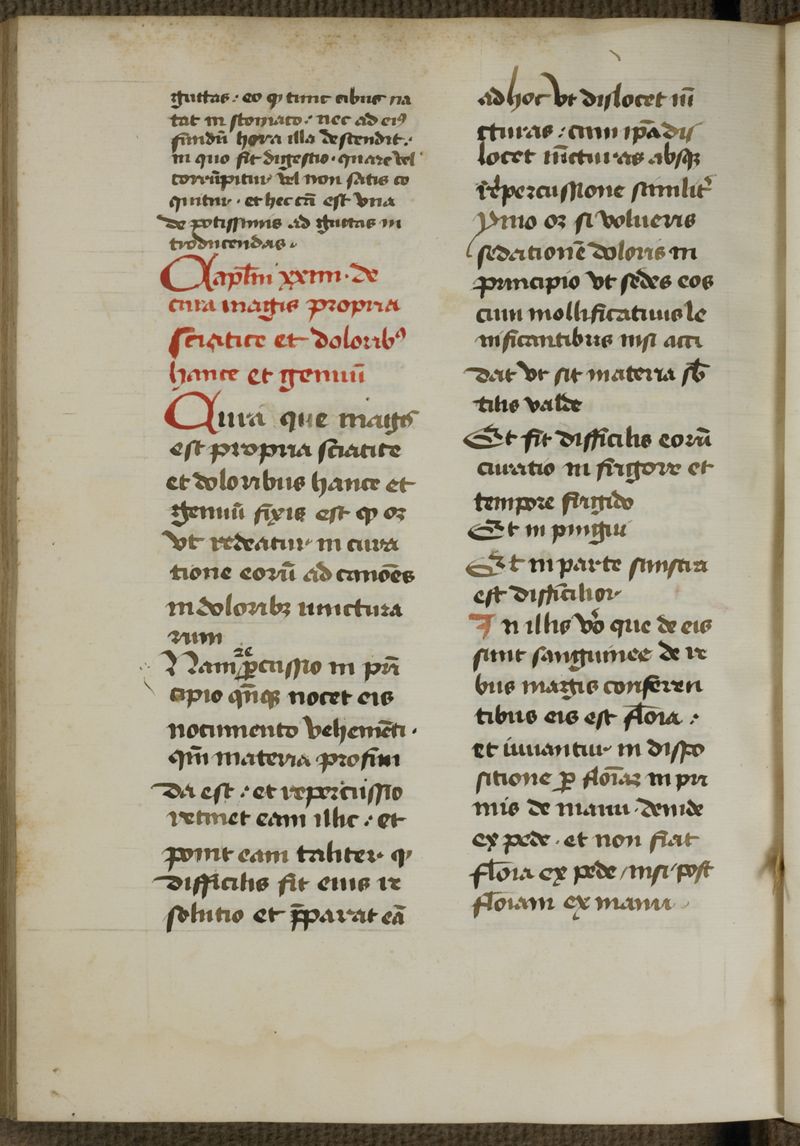 guttas: eo q̛ tunc cibus na
tat in stomaco: nec ad eiꝰ
fundū hora illa descendit.
in quo fit digestio. quare vel
corrūpitur vel non satis co
quitur. et hec cā est vna
de potissimis ad guttas in
troducendas.
Caplm̄ xxiiii. de
cura magis propria
sciatice et doloribꝰ
hance et genuū
Cura que magis
est propria sciatice
et doloribus hance et
genuū fixis est q̛ oꝫ
vt redeatur in cura
tione eorū ad canōes
in doloribꝫ iunctura
rum
Nam ꝑcussio in prī
cipio qn̄qꝫ nocet eis
nocumento vehemēti.
qm̄ materia profun
da est: et repercussio
retinet eam illic: et
ponit eam taliter q̛
difficilis fit eius re
solutio et p̄parat eā
ad hoc vt dislocet iūc
cturas: cum ip̄a dis
locet iūcturas absqꝫ
repercussione similit᷒
ymo oꝫ si volueris
sedationē doloris in
principio vt sedes eos
cum mollificatiuis le
nificantibus nisi acci
dat vt sit materia sb̄
tilis valde
Et fit difficilis eorū
curatio in frigore et
tempore frigido
Et in pingui
Et in parte sinistra
est difficilior
In illis vo que de eis
sunt sanguinee de re
bus magis conferen
tibus eis est flōia:
et iuuantur in dispo
sitione ꝑ flōiaꝫ in pri
mis de manu. deinde
ex pede. et non fiat
flōia ex pede / nisi post
flōiam ex manu